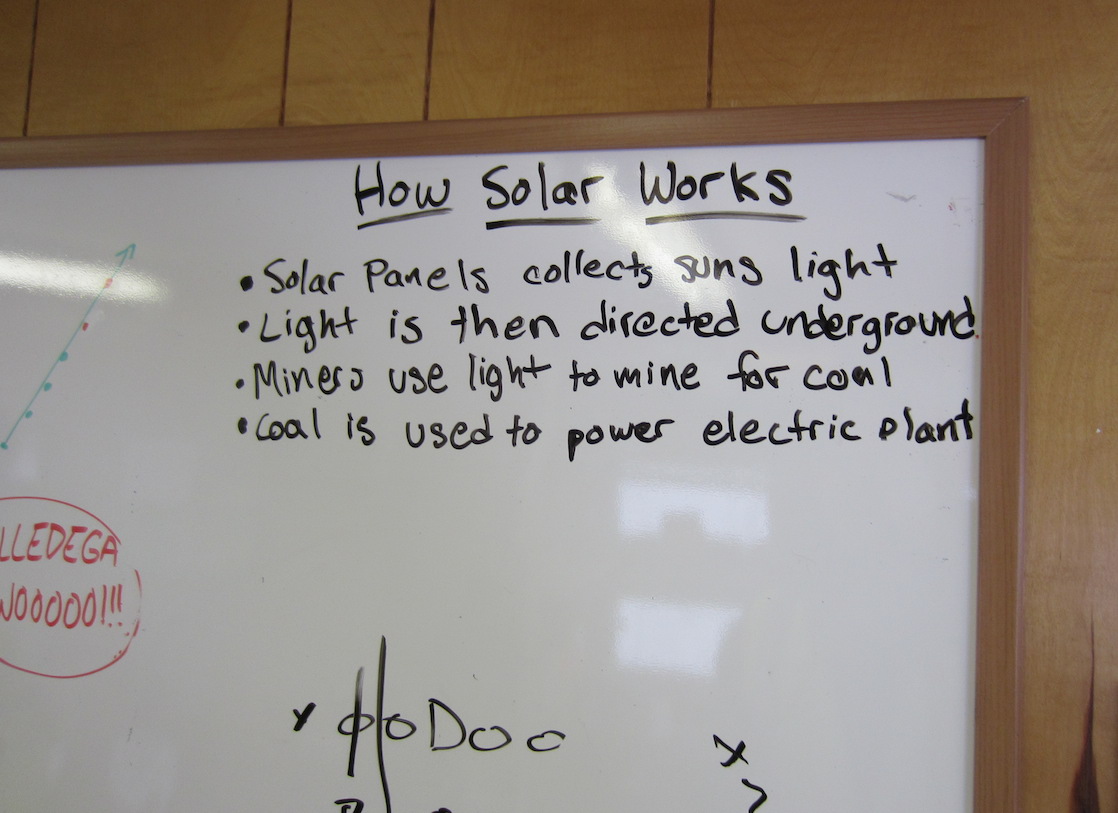 How Solar Works
• Solar Panels collects suns light
• Light is then directed underground.
• Miners use light to mine for coal
• Coal is used to power electric plant
LLEDEGA
NOOOOO!!!